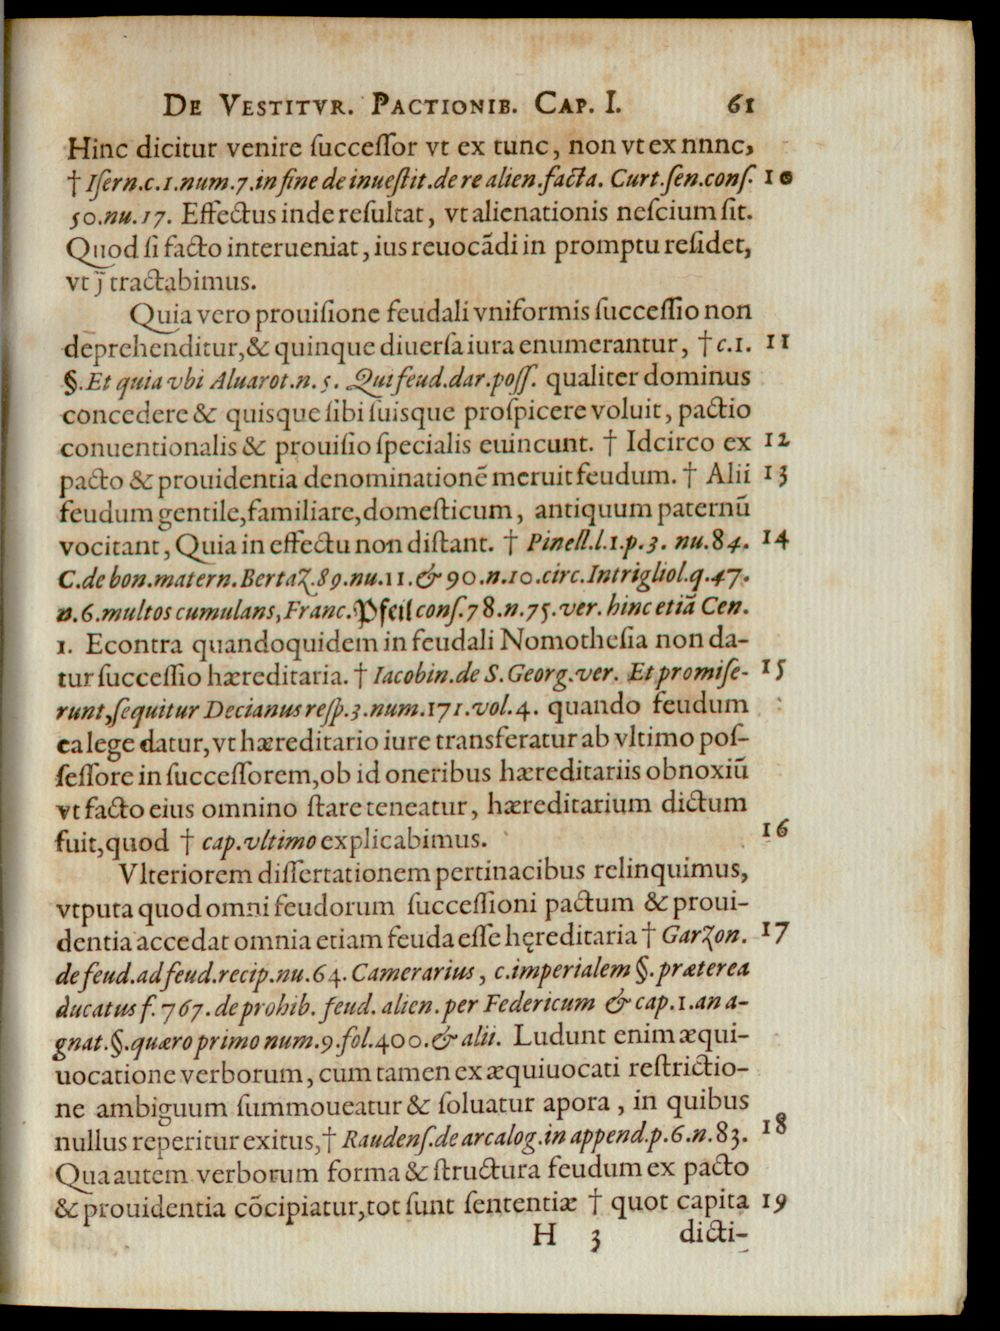 De Vestitvr. Pactionib. Cap. I. 61
Hinc dicitur venire ſucceſſor vt ex tunc, non vt ex nnnc,
† Iſern.c.1.num.7.in fine de inueſtit.de re alien.facta. Curt.ſen.conſ. 10
50.nu.17. Effectus inde reſultat, vt alienationis neſcium ſit.
Quod ſi facto interueniat, ius reuocãdi in promptu reſidet,
vt j̃ tractabimus.
Quia vero prouiſione feudali vniformis ſucceſſio non
deprehenditur, & quinque diuerſa iura enumerantur, † c.1. 11
§.Et quia vbi Aluarot.n.5. Qui feud.dar.poſſ. qualiter dominus
concedere & quisque ſibi ſuisque proſpicere voluit, pactio
conuentionalis & prouiſio ſpecialis euincunt. † Idcirco ex 12
pacto & prouidentia denominationẽ meruit feudum. † Alii 13
feudum gentile, familiare, domeſticum, antiquum paternũ
vocitant, Quia in effectu non diſtant. † Pinell.l.1.p.3. nu.84. 14
C.de bon.matern.Bertaz.89.nu.11.& 90.n.10.circ.Intrigliol.q.47.
n.6.multos cumulans, Franc.Pfeil conſ.78.n.75.ver. hinc etiã Cen.
1. Econtra quandoquidem in feudali Nomotheſia non da-
tur ſucceſſio hæreditaria. † Iacobin.de S.Georg.ver. Et promiſe- 15
runt, ſequitur Decianus reſp.3.num.171.vol.4. quando feudum
ea lege datur, vt hæreditario iure transferatur ab vltimo poſ-
ſeſſore in ſucceſſorem, ob id oneribus hæreditariis obnoxiũ
vt facto eius omnino ſtare teneatur, hæreditarium dictum
fuit, quod † cap.vltimo explicabimus. 16
Vlteriorem diſſertationem pertinacibus relinquimus,
vtputa quod omni feudorum ſucceſſioni pactum & proui-
dentia accedat omnia etiam feuda eſſe hęreditaria † Garzon. 17
de feud.ad feud.recip.nu.64. Camerarius, c.imperialem §.præterea
ducatus f.767.de prohib. feud. alien. per Federicum & cap.1.an a-
gnat.§.quæro primo num.9.fol.400.& alii. Ludunt enim æqui-
uocatione verborum, cum tamen ex æquiuocati reſtrictio-
ne ambiguum ſummoueatur & ſoluatur apora, in quibus
nullus reperitur exitus, † Raudenſ.de arcalog.in append.p.6.n.83. 18
Qua autem verborum forma & ſtructura feudum ex pacto
& prouidentia cõcipiatur, tot ſunt ſententiæ † quot capita 19
H 3 dicti-